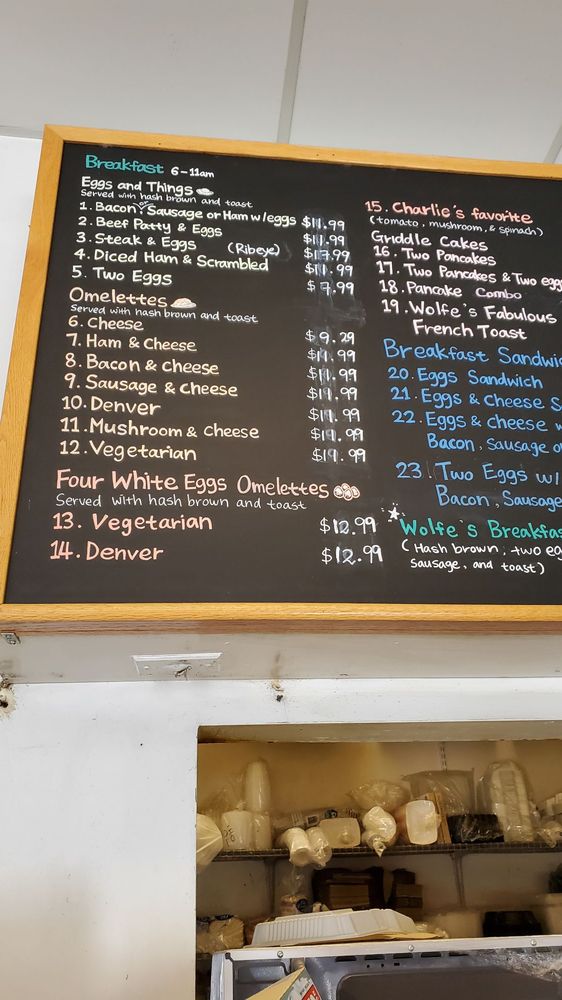 Breakfast 6-11am
Eggs and Things
Served with hash brown and toast
1. Bacon or Sausage or Ham w/eggs $11.99
2. Beef Patty & Eggs $11.99
3. Steak & Eggs (Ribeye) $17.99
4. Diced Ham & Scrambled $11.99
5. Two Eggs $7.99
Omelettes
Served with hash brown and toast
6. Cheese $9.29
7. Ham & Cheese $11.99
8. Bacon & Cheese $11.99
9. Sausage & Cheese $11.99
10. Denver $11.99
11. Mushroom & Cheese $11.99
12. Vegetarian $11.99
Four White Eggs Omelettes
Served with hash brown and toast
13. Vegetarian $12.99
14. Denver $12.99
15. Charlie's favorite
(tomato, mushroom, & spinach)
Griddle Cakes
16. Two Pancakes
17. Two Pancakes & Two egg
18. Pancake Combo
19. Wolfe's Fabulous
French Toast
Breakfast Sandwi
20. Eggs Sandwich
21. Eggs & cheese S
22. Eggs & cheese w
Bacon, sausage o
23. Two Eggs w/
Bacon, Sausage
Wolfe's Breakfas
(Hash brown, two eg
Sausage, and toast)